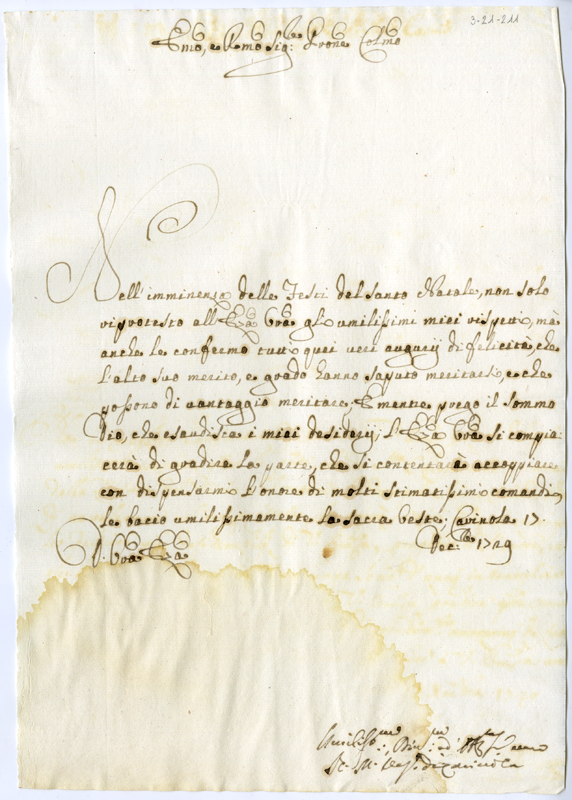 3-21-211
Emo, e Rmo Sig:re Prone Colmo
Nell'imminenza delle Festi del Santo Natale, non solo
riprotesto all'Eza Vra gl'umilissimi miei rispetti, mà
anche le confermo tutti quei veri augurij di felicità, che
l'alto suo merito, e grado hanno saputo meritarsi, e che
possono di vantaggio meritare, E mentre prego il Sommo
Dio, che esaudisca i miei desiderij, l'Eza Vra si compia
cerà di gradire la parte, che si contentarà accoppiare
con dispensarmi l'onore di molti stimatissimi comandi,
le bacio umilissimamente la sacra Veste. Carinola 17.
Dec:bre 1729
D. Vra Eza
Umiliss:mo
di Carinola